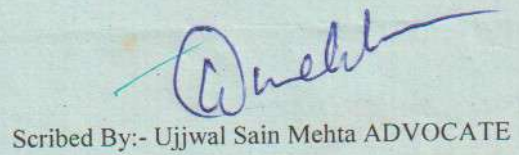 Scribed By:- Ujjwal Sain Mehta ADVOCATE